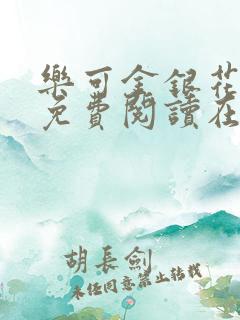 樂可金銀花
免費閱讀在
胡長劍
未經同意禁止轉載